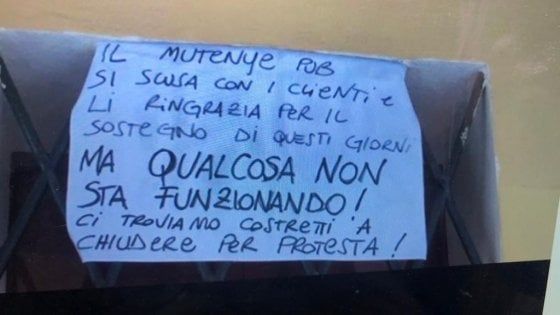 IL MUTENYE PUB
SI SCUSA CON I CLIENTI e
LI RINGRAZIA PER IL
SOSTEGNO DI QUESTI GIORNI
MA QUALCOSA NON
STA FUNZIONANDO!
CI TROVIAMO COSTRETTI A
CHIUDERE PER PROTESTA!